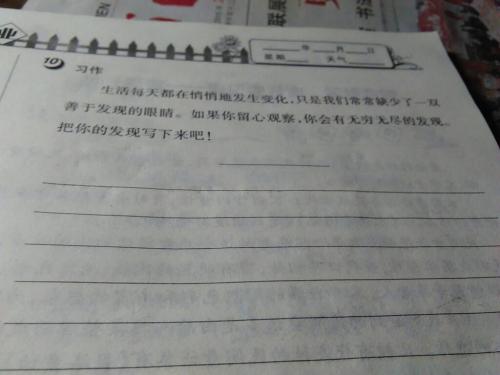 业
年 月 日
星期 天气
10 习作
生活每天都在悄悄地发生变化,只是我们常常缺少了一双
善于发现的眼睛。如果你留心观察,你会有无穷无尽的发现。
把你的发现写下来吧!